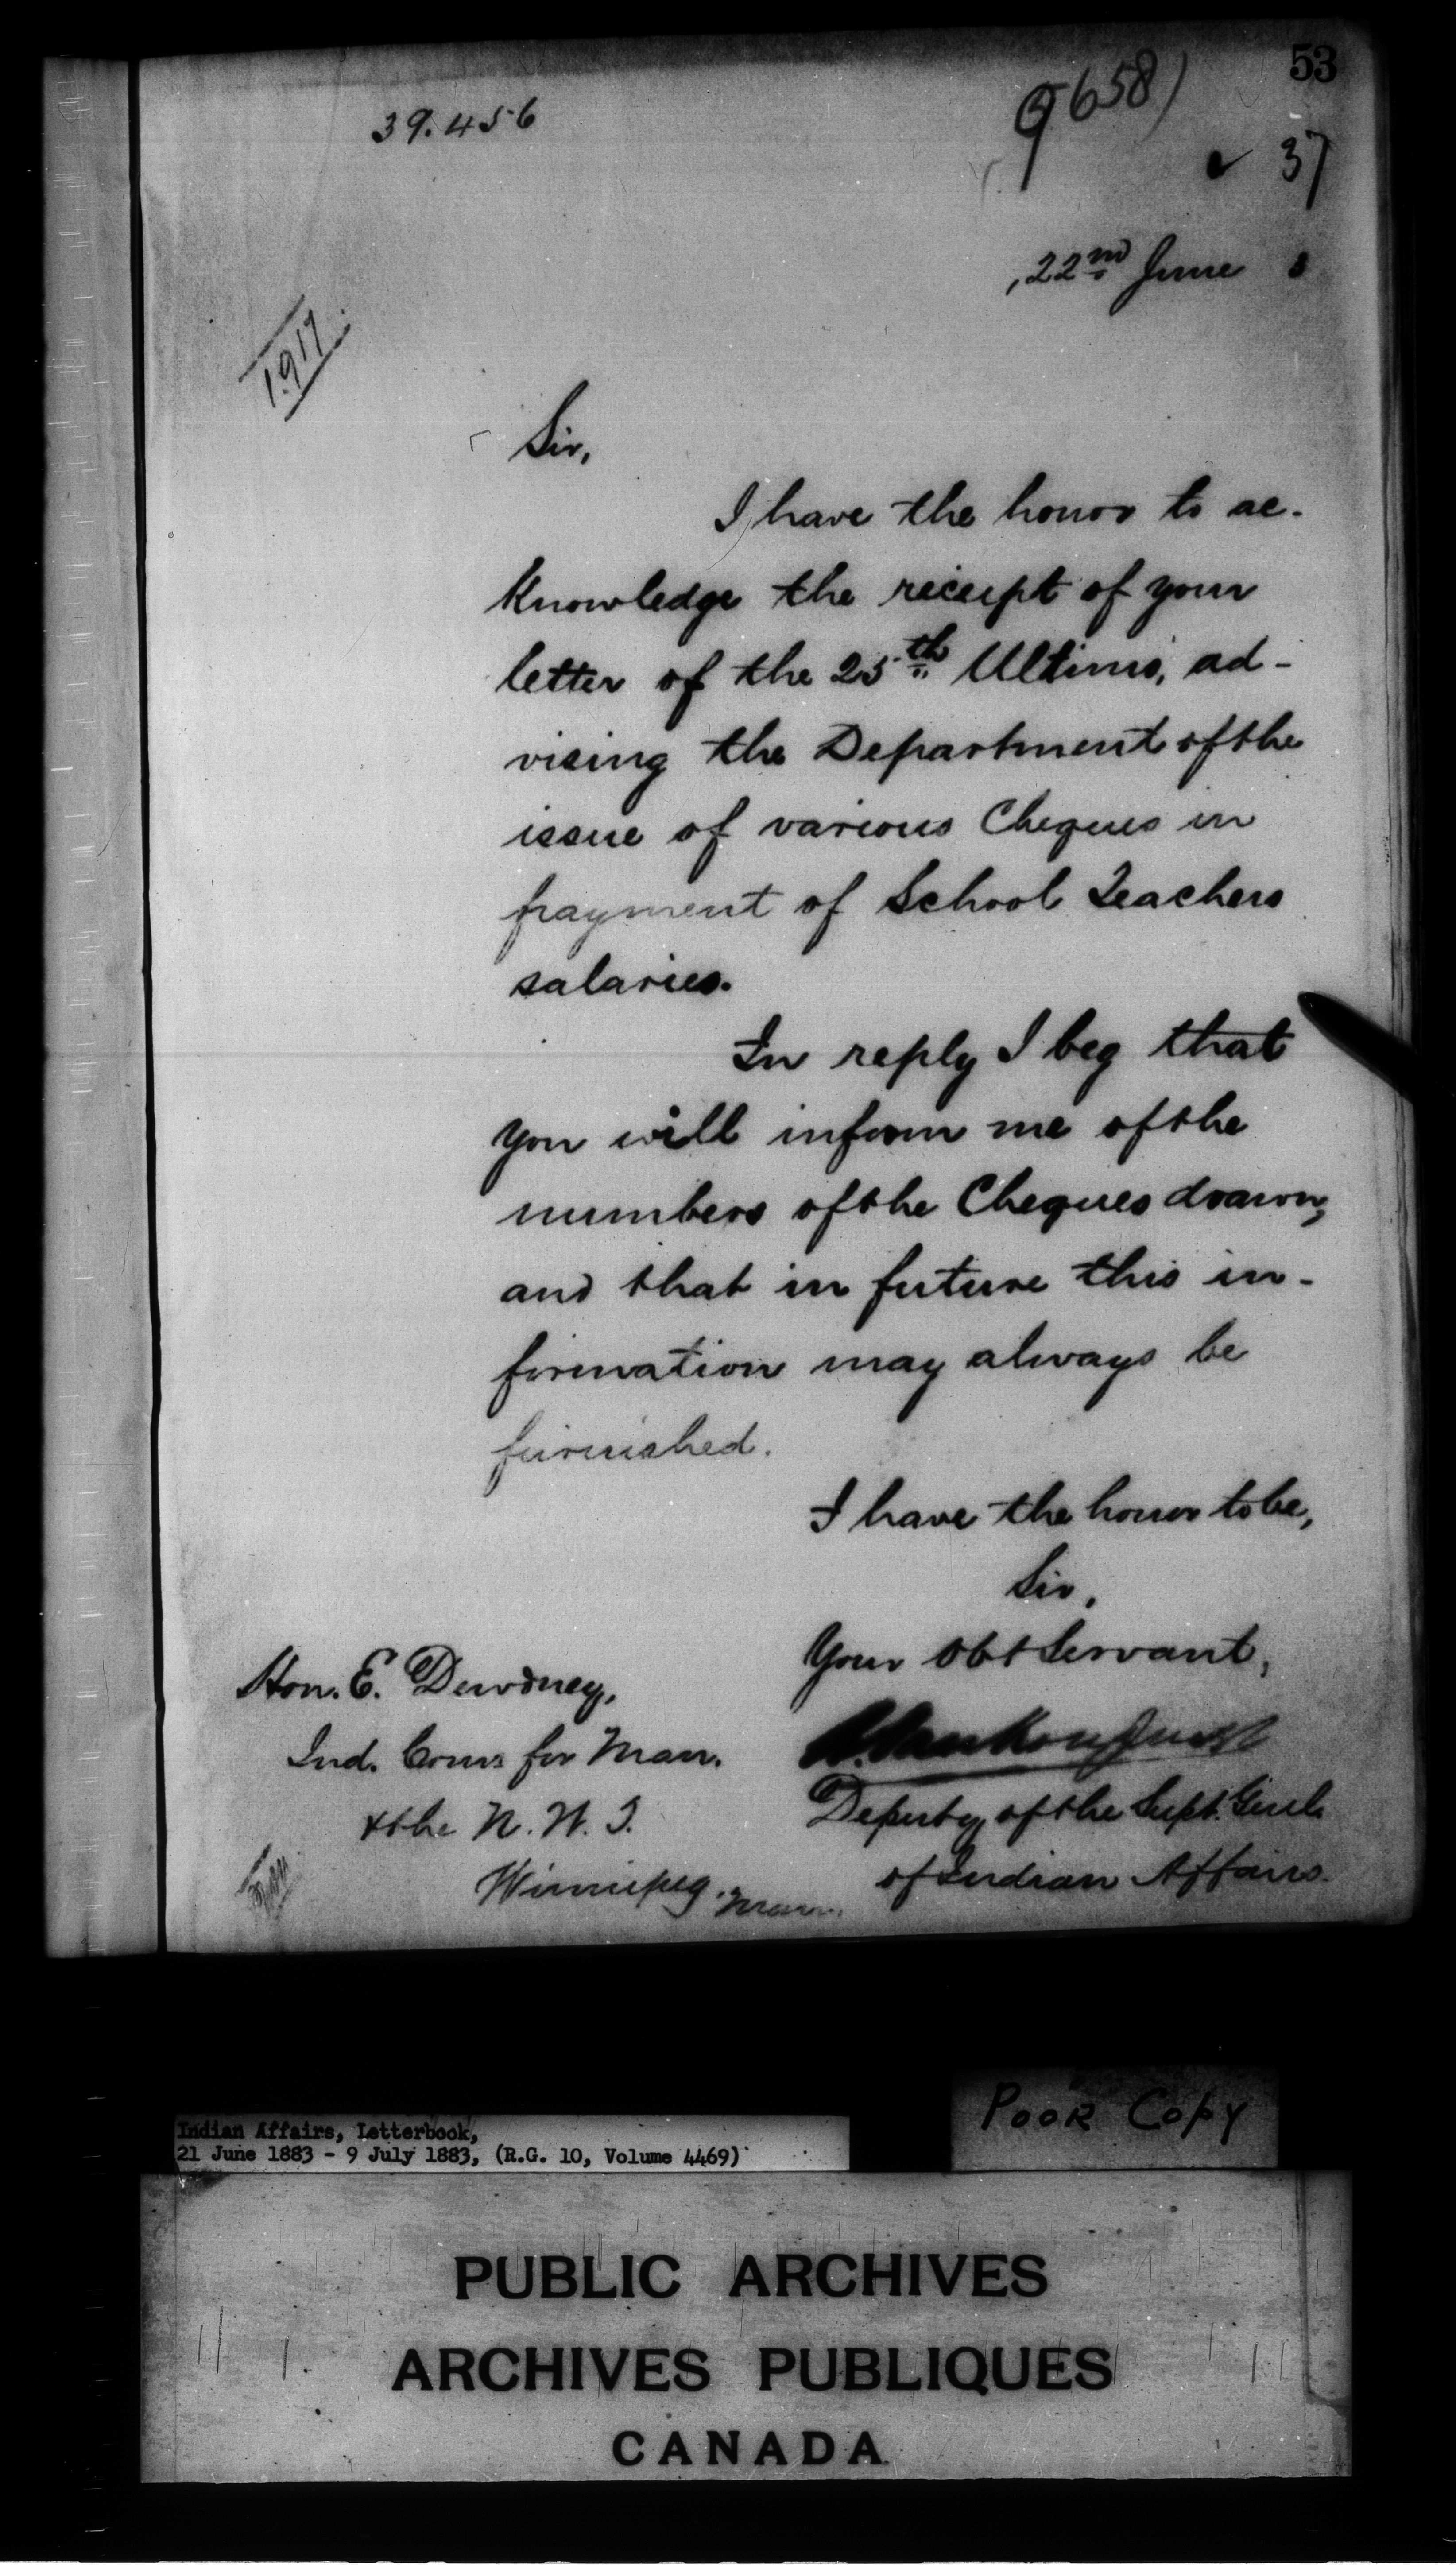 53
39.456
9658
37
22nd June 8
1917
Sir,
I have the honor to ac-
knowledge the receipt of your
letter of the 25th Ultimo, ad-
vising the Department of the
issue of various Cheques in
payment of School Teachers
salaries.
In reply I beg that
you will inform me of the
numbers of the Cheques drawn,
and that in future this in-
formation may always be
furnished.
I have the honor to be,
Sir,
Your obt Servant,
L. Vankoughnet
Deputy of the Supt. Genl.
of Indian Affairs.
Hon. E. Dewdney,
Ind. Comr for Man.
& the N. W. T.
Winnipeg. Man.
Indian Affairs, Letterbook,
21 June 1883 - 9 July 1883, (R.G. 10, Volume 4469)
POOR COPY
PUBLIC ARCHIVES
ARCHIVES PUBLIQUES
CANADA